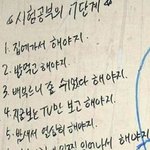 <시험공부의 7단계>
1. 집에가서 해야지.
2. 밥먹고 해야지.
3. 배부르니 좀 쉬었다 해야지.
4. 지금보는 TV만 보고 해야지.
5. 밤새서 열심히 해야지.
일어나서 해야지